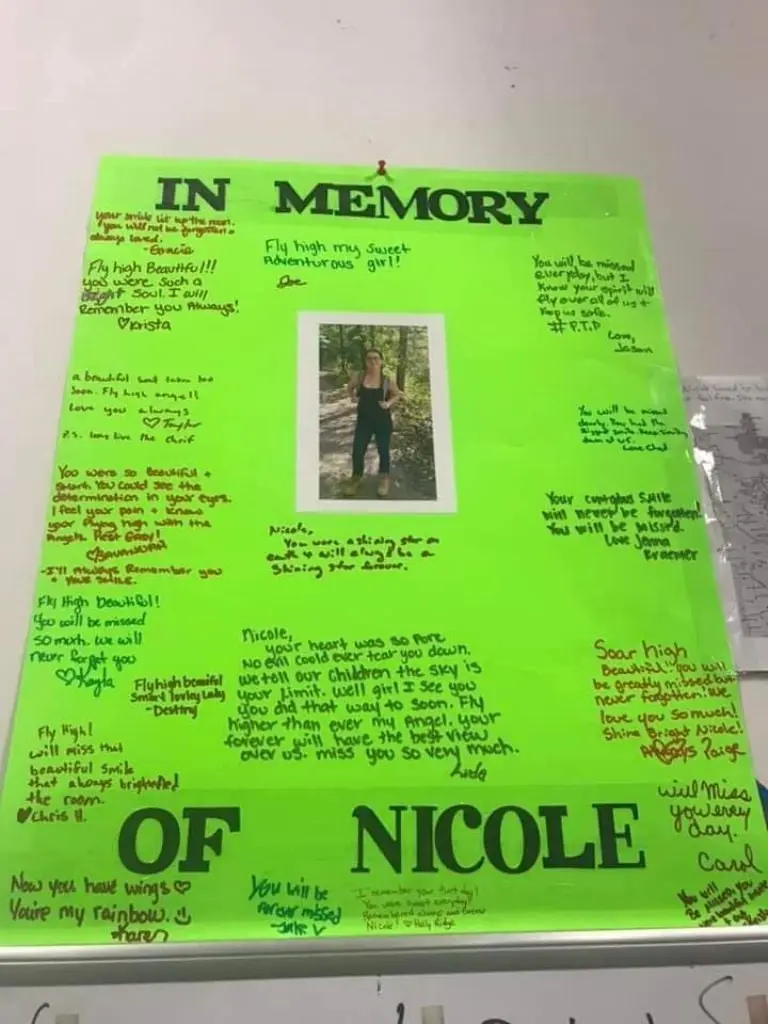 IN MEMORY
Your smile lit up the room.
you will not be forgotten &
always loved.
-Gracie
Fly high Beautiful!!
you were such a
Bright Soul. I will
Remember you Always!
♡Krista
Fly high my sweet
Adventurous girl!
Joe
You will be missed
everyday, but I
know your spirit will
fly over all of us &
keep us safe.
# P.T.P
Love,
Jason
a beautiful soul taken too
soon. Fly high angel!
Love you always
♡ Taylor
P.S. long live the Chief
You will be missed
dearly. You had the
biggest smile. Keep smiling
down at us.
Love Chad
You were so Beautiful &
smart. You could see the
determination in your eyes.
I feel your pain & know
your flying high with the
Angels. Rest Easy!
♡Savannah
-I'll Always Remember you
& your smile.
Your contagious SMILE
will never be forgotten!
You will be missed.
Love Jenna
Kraemer
Nicole,
You were a shining star on
earth & will always be a
shining star forever.
Fly High Beautiful!
You will be missed
so much. We will
never forget you
♡Kayla
Fly high beautiful
Smart lovley Lady
-Destiny
Nicole,
your heart was so pure
No evil could ever tear you down.
we tell our children the sky is
your limit. Well girl I see you
you did that way to soon. Fly
higher than ever my Angel. your
forever will have the best view
over us. miss you so very much.
Soar high
Beautiful! you will
be greatly missed but
never forgotten! We
love you so much!
Shine Bright Nicole!
Always Paige
Fly High!
will miss that
beautiful smile
that always brightened
the room.
♥Chris H.
will Miss
you every
day.
Carol
OF NICOLE
Now you have wings ♡
You're my rainbow. :)
You will be
forever missed
-Jake
I remember your first day!
You were sweet everyday!
Remembered always and forever
Nicole! ♡ Holly Ridge
You will
Be Missed. You